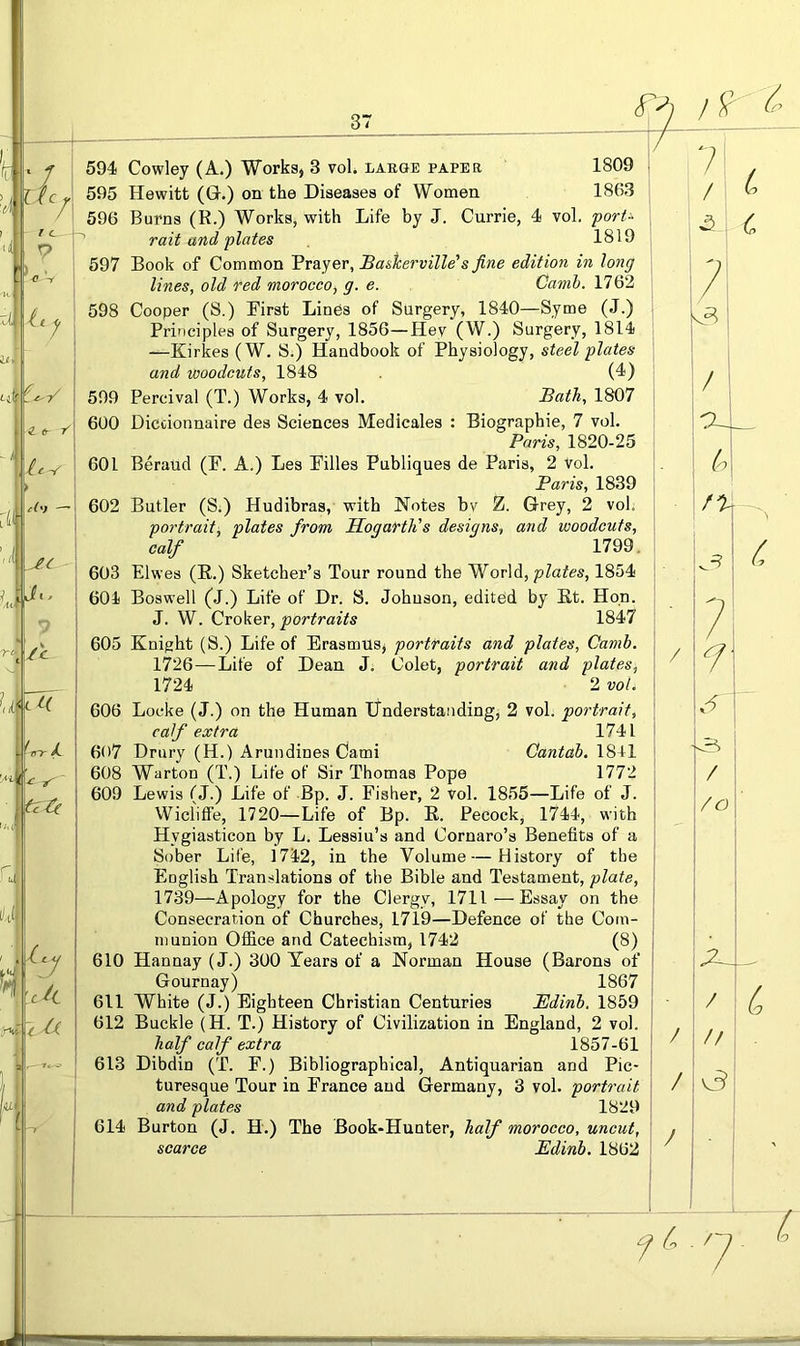 37
594 Cowley (A.) Works, 3 vol. LARGE PAPER 1809
595 Hewitt (G.) on the Diseases of Women 1863
596 Burns (R.) Works, with Life by J. Currie, 4 vol. port-
rait and plates 1819
597 Book of Common Prayer, Baskerville's fine edition in long
lines, old red morocco, g. e. Camb. 1762
598 Cooper (S.) First Lines of Surgery, 1840—Syme (J.)
Principles of Surgery, 1856—Hey (W.) Surgery, 1814
—Kirkes (W. S.) Handbook of Physiology, steel plates
and woodcuts, 1848 (4)
599 Percival (T.) Works, 4 vol. Bath, 1807
600 Dictionnaire des Sciences Medicales : Biographie, 7 vol.
Paris, 1820-25
601 Béraud (F. A.) Les Filles Publiques de Paris, 2 vol.
Paris, 1839
602 Butler (S.) Hudibras, with Notes by Z. Grey, 2 vol.
portrait, plates from Hogarth's designs, and woodcuts,
calf 1799
603 Elwes (R.) Sketcher's Tour round the World, plates, 1854
604 Boswell (J.) Life of Dr. S. Johnson, edited by Rt. Hon.
J. W. Croker, portraits 1847
605 Knight (S.) Life of Erasmus, portraits and plates, Camb.
1726—Life of Dean J. Colet, portrait and plates,
1724 2 vol.
606 Locke (J.) on the Human Understanding, 2 vol. portrait,
calf extra 1741
607 Drury (H.) Arundines Cami Cantab. 1841
608 Warton (T.) Life of Sir Thomas Pope 1772
609 Lewis (J.) Life of Bp. J. Fisher, 2 vol. 1855—Life of J.
Wicliffe, 1720—Life of Bp. R. Pecock, 1744, with
Hygiasticon by L. Lessiu's and Cornaro's Benefits of a
Sober Life, 1742, in the Volume—History of the
English Translations of the Bible and Testament, plate,
1739—Apology for the Clergy, 1711—Essay on the
Consecration of Churches, 1719—Defence of the Com-
munion Office and Catechism, 1742 (8)
610 Hannay (J.) 300 Years of a Norman House (Barons of
Gournay) 1867
611 White (J.) Eighteen Christian Centuries Edinb. 1859
612 Buckle (H. T.) History of Civilization in England, 2 vol.
half calf extra 1857-61
613 Dibdin (T. F.) Bibliographical, Antiquarian and Pic-
turesque Tour in France and Germany, 3 vol. portrait
and plates 1829
614 Burton (J. H.) The Book-Hunter, half morocco, uncut,
scarce Edinb. 1862